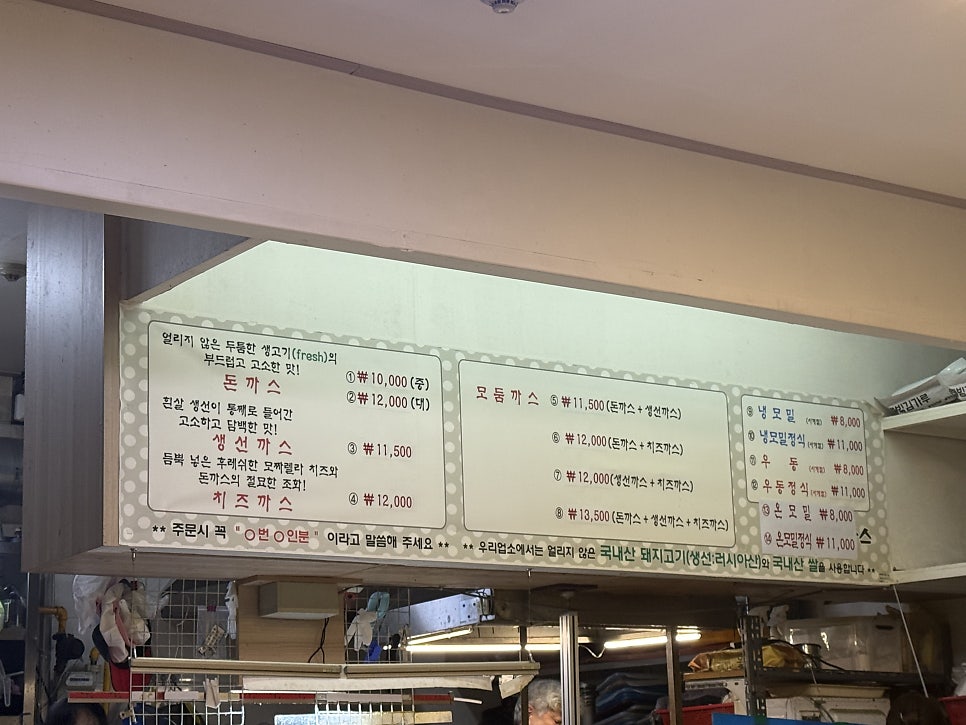 얼리지 않은 두툼한 생고기(fresh)의
부드럽고 고소한 맛!
돈까스
①₩10,000(중)
②₩12,000(대)
흰살 생선이 통째로 들어간
고소하고 담백한 맛!
생선까스 ③ ₩11,500
듬뿍 넣은 후레쉬한 모짜렐라 치즈와
돈까스의 절묘한 조화!
치즈까스 ④ ₩12,000
모둠까스 ⑤ ₩11,500(돈까스+생선까스)
⑥ ₩12,000(돈까스+치즈까스)
⑦ ₩12,000(생선까스+치즈까스)
⑧ ₩13,500(돈까스+생선까스+치즈까스)
⑨ 냉모밀 ₩8,000
⑩ 냉모밀정식 ₩11,000
⑪ 우동 ₩8,000
⑫ 우동정식 ₩11,000
⑬ 온모밀 ₩8,000
⑭ 온모밀정식 ₩11,000
스
** 주문시 꼭 "○번 ○인분" 이라고 말씀해 주세요 **
** 우리업소에서는 얼리지 않은 국내산 돼지고기(생선:러시아산)와 국내산 쌀을 사용합니다 **